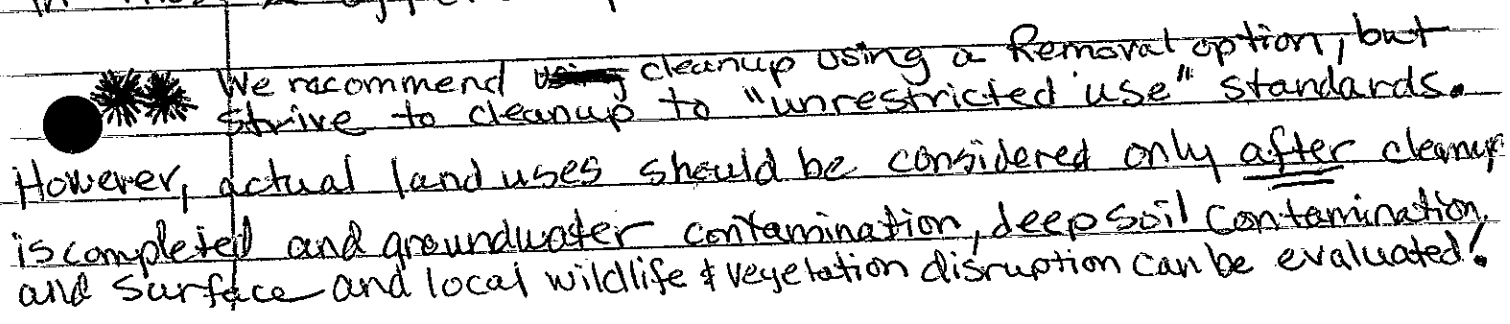 We recommend cleanup using a Removal option, but
strive to cleanup to "unrestricted use" standards.
However, actual land uses should be considered only after cleanup
is completed and groundwater contamination, deep soil contamination,
and surface and local wildlife & vegetation disruption can be evaluated!